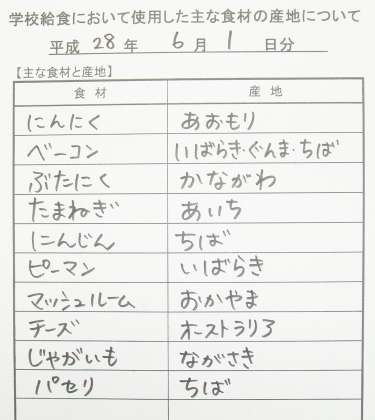 学校給食において使用した主な食材の産地について
平成 28 年 6 月 1 日分
【主な食材と産地】
食 材 産 地
にんにく あおもり
ベーコン いばらき・ぐんま・ちば
ぶたにく かながわ
たまねぎ あいち
にんじん ちば
ピーマン いばらき
マッシュルーム おかやま
チーズ オーストラリア
じゃがいも ながさき
パセリ ちば